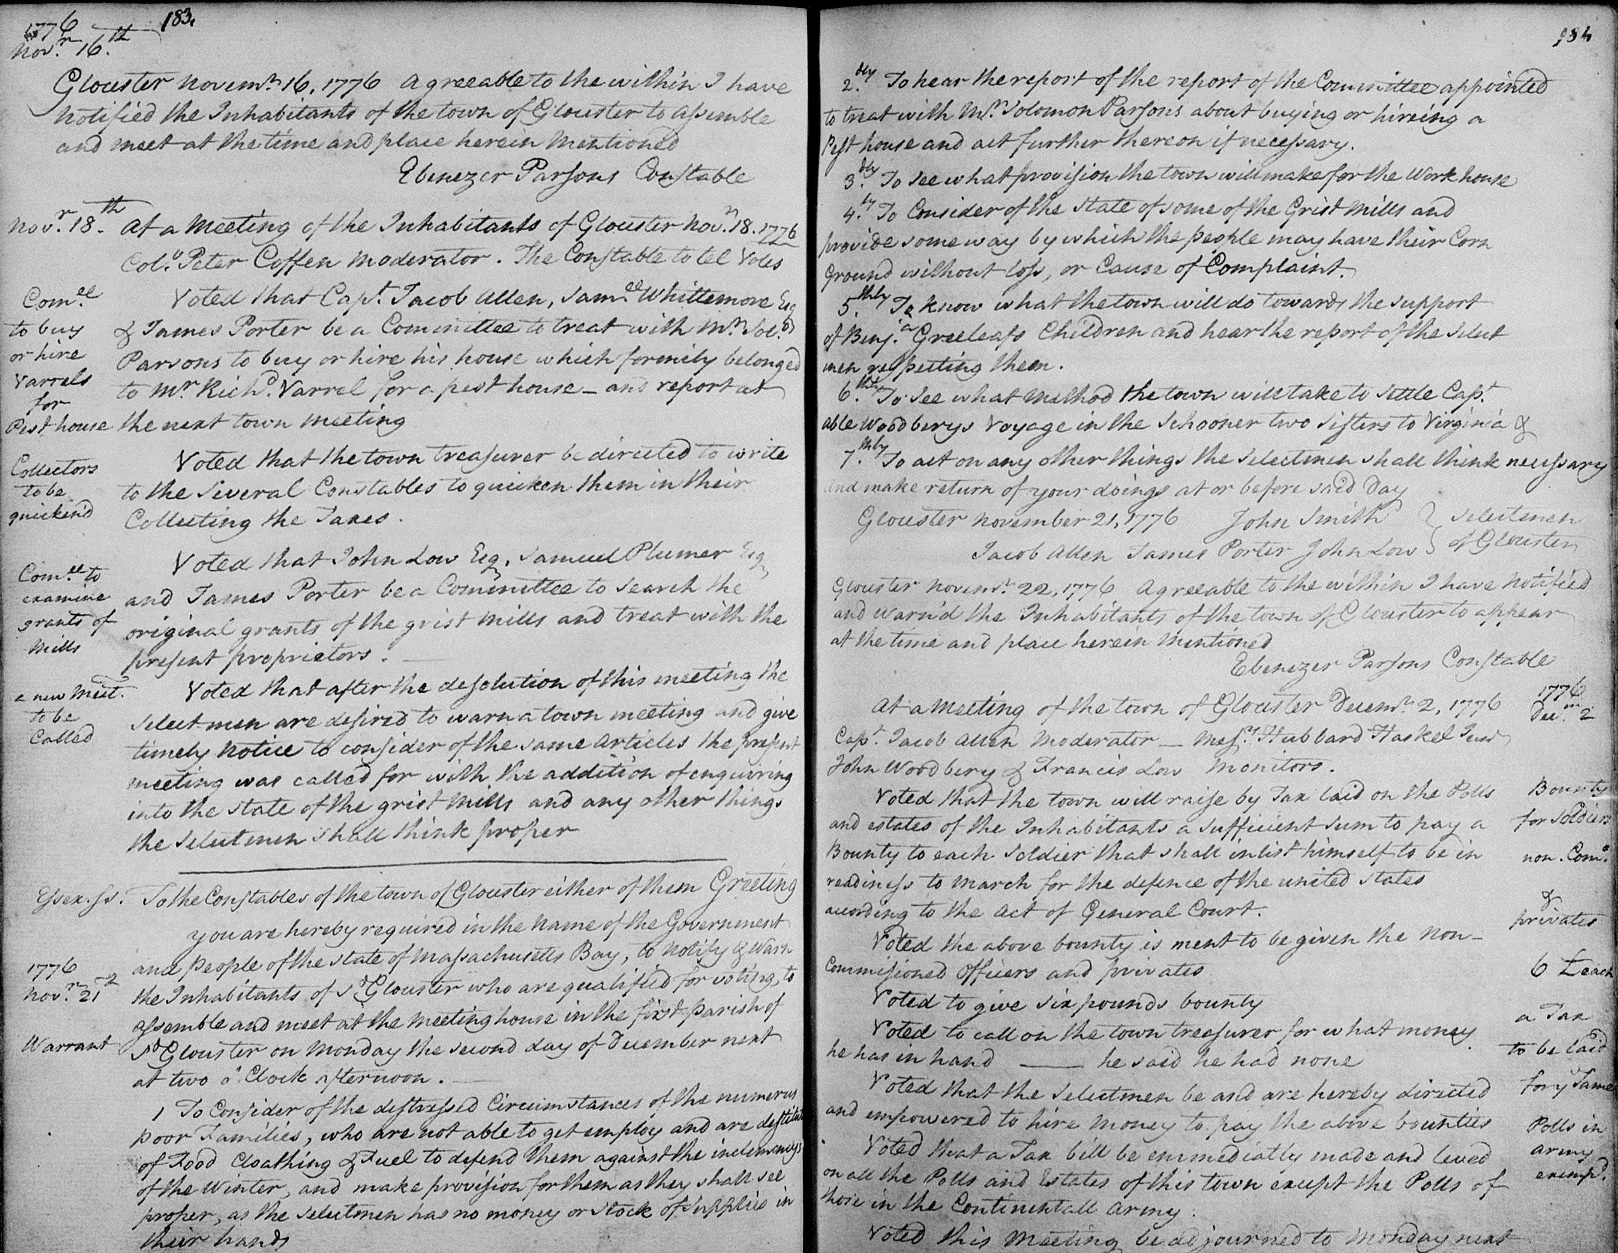 1776
183.
Novr. 16th
Glouster Novemr. 16, 1776 Agreeable to the within I have
Notified the Inhabitants of the town of Glouster to assemble
and meet at the time and place herein Mentioned
Ebenezer Parsons Constable
Novr. 18th At a Meeting of the Inhabitants of Glouster Novr. 18. 1776
Colo. Peter Coffen Moderator. The Constable to tel Votes
Comee Voted that Capt. Jacob Allen, Samll Whittemore Esq
to buy & James Porter be a Committee to treat with Mr. Solo.
or hire Parsons to buy or hire his house which formily belonged
Varrels to Mr. Richd. Varrel for a pest house - and report at
for
Pest house the next town meeting
Collectors Voted that the town treasurer be directed to write
to be to the Several Constables to quicken them in their
quickend Collecting the Taxes.
Voted that John Low Esq, Samuel Plumer Esq
Comee to and James Porter be a Committee to Search the
examine
grants of original grants of the grist Mills and treat with the
Mills present proprietors.
a new Meet. Voted that after the desolution of this meeting the
to be Select men are desired to warn a town meeting and give
Called timely Notice to consider of the same Articles the present
meeting was called for with the addition of enquiring
into the state of the grist Mills and any other things
the Selectmen shall think proper
Essex ss. To the Constables of the town of Glouster either of them Greeting
you are hereby required in the Name of the Government
1776 and People of the State of Massachusetts Bay, to Notify & Warn
Novr. 21 the Inhabitants of sd. Glouster who are qualified for voting, to
assemble and meet at the Meeting house in the first parish of
Warrant sd. Glouster on Monday the second day of December next
at two o'Clock afternoon.
1 To Consider of the distressed Circumstances of the numerus
poor Families, who are not able to get employ and are destitute
of Food Cloathing & Fuel to defend them against the inclemency
of the Winter, and make provision for them as they shall see
proper, as the Selectmen has no money or stock of supplies in
their hands
184
2dly. To hear the report of the report of the Committee appointed
to treat with Mr. Solomon Parsons about buying or hireing a
Pest house and act further thereon if necessary.
3dly. To see what provision the town will make for the Work house
4ly. To Consider of the State of some of the Grist Mills and
provide some way by which the people may have their Corn
Ground without loss, or Cause of Complaint.
5thly. To know what the town will do towards the support
of Benja. Greeleafs Children and hear the report of the Select
men respecting them.
6thly. To see what Method the town will take to settle Capt.
able Woodberys Voyage in the Schooner two Sisters to Virginia &
7thly. To act on any other things the Selectmen shall think necessary
and make return of your doings at or before said Day
Glouster November 21, 1776 John Smith } Selectmen
Jacob Allen James Porter John Low } of Glouster
Glouster Novemr. 22, 1776 Agreeable to the within I have Notified
and Warn'd the Inhabitants of the town of Glouster to appear
at the time and place herein Mentioned
Ebenezer Parsons Constable
At a Meeting of the town of Glouster Decemr. 2, 1776 1776
Decm. 2
Capt. Jacob Allen Moderator - Messrs. Hubbard Haskel
John Woodbery & Francis Low Monitors.
Voted that the town will raise by Tax laid on the Polls Bounty
and estates of the Inhabitants a sufficient sum to pay a for Soldiers
Bounty to each Soldier that shall inlist himself to be in non. Comd.
readiness to March for the defence of the united States &
according to the Act of General Court. privates
Voted the above bounty is ment to be given the Non-
Commissioned Officers and privates 6 £ each
Voted to give six pounds bounty
Voted to call on the town treasurer for what money a Tax
he has in hand —— he said he had none to be laid
Voted that the Selectmen be and are hereby directed for y Same
and empowered to hire Money to pay the above bounties Polls in
Voted that a Tax bill be immediatly made and levied army
on all the Polls and Estates of this town except the Polls of exempd.
those in the Continentall Army.
Voted this Meeting be adjourned to Monday next